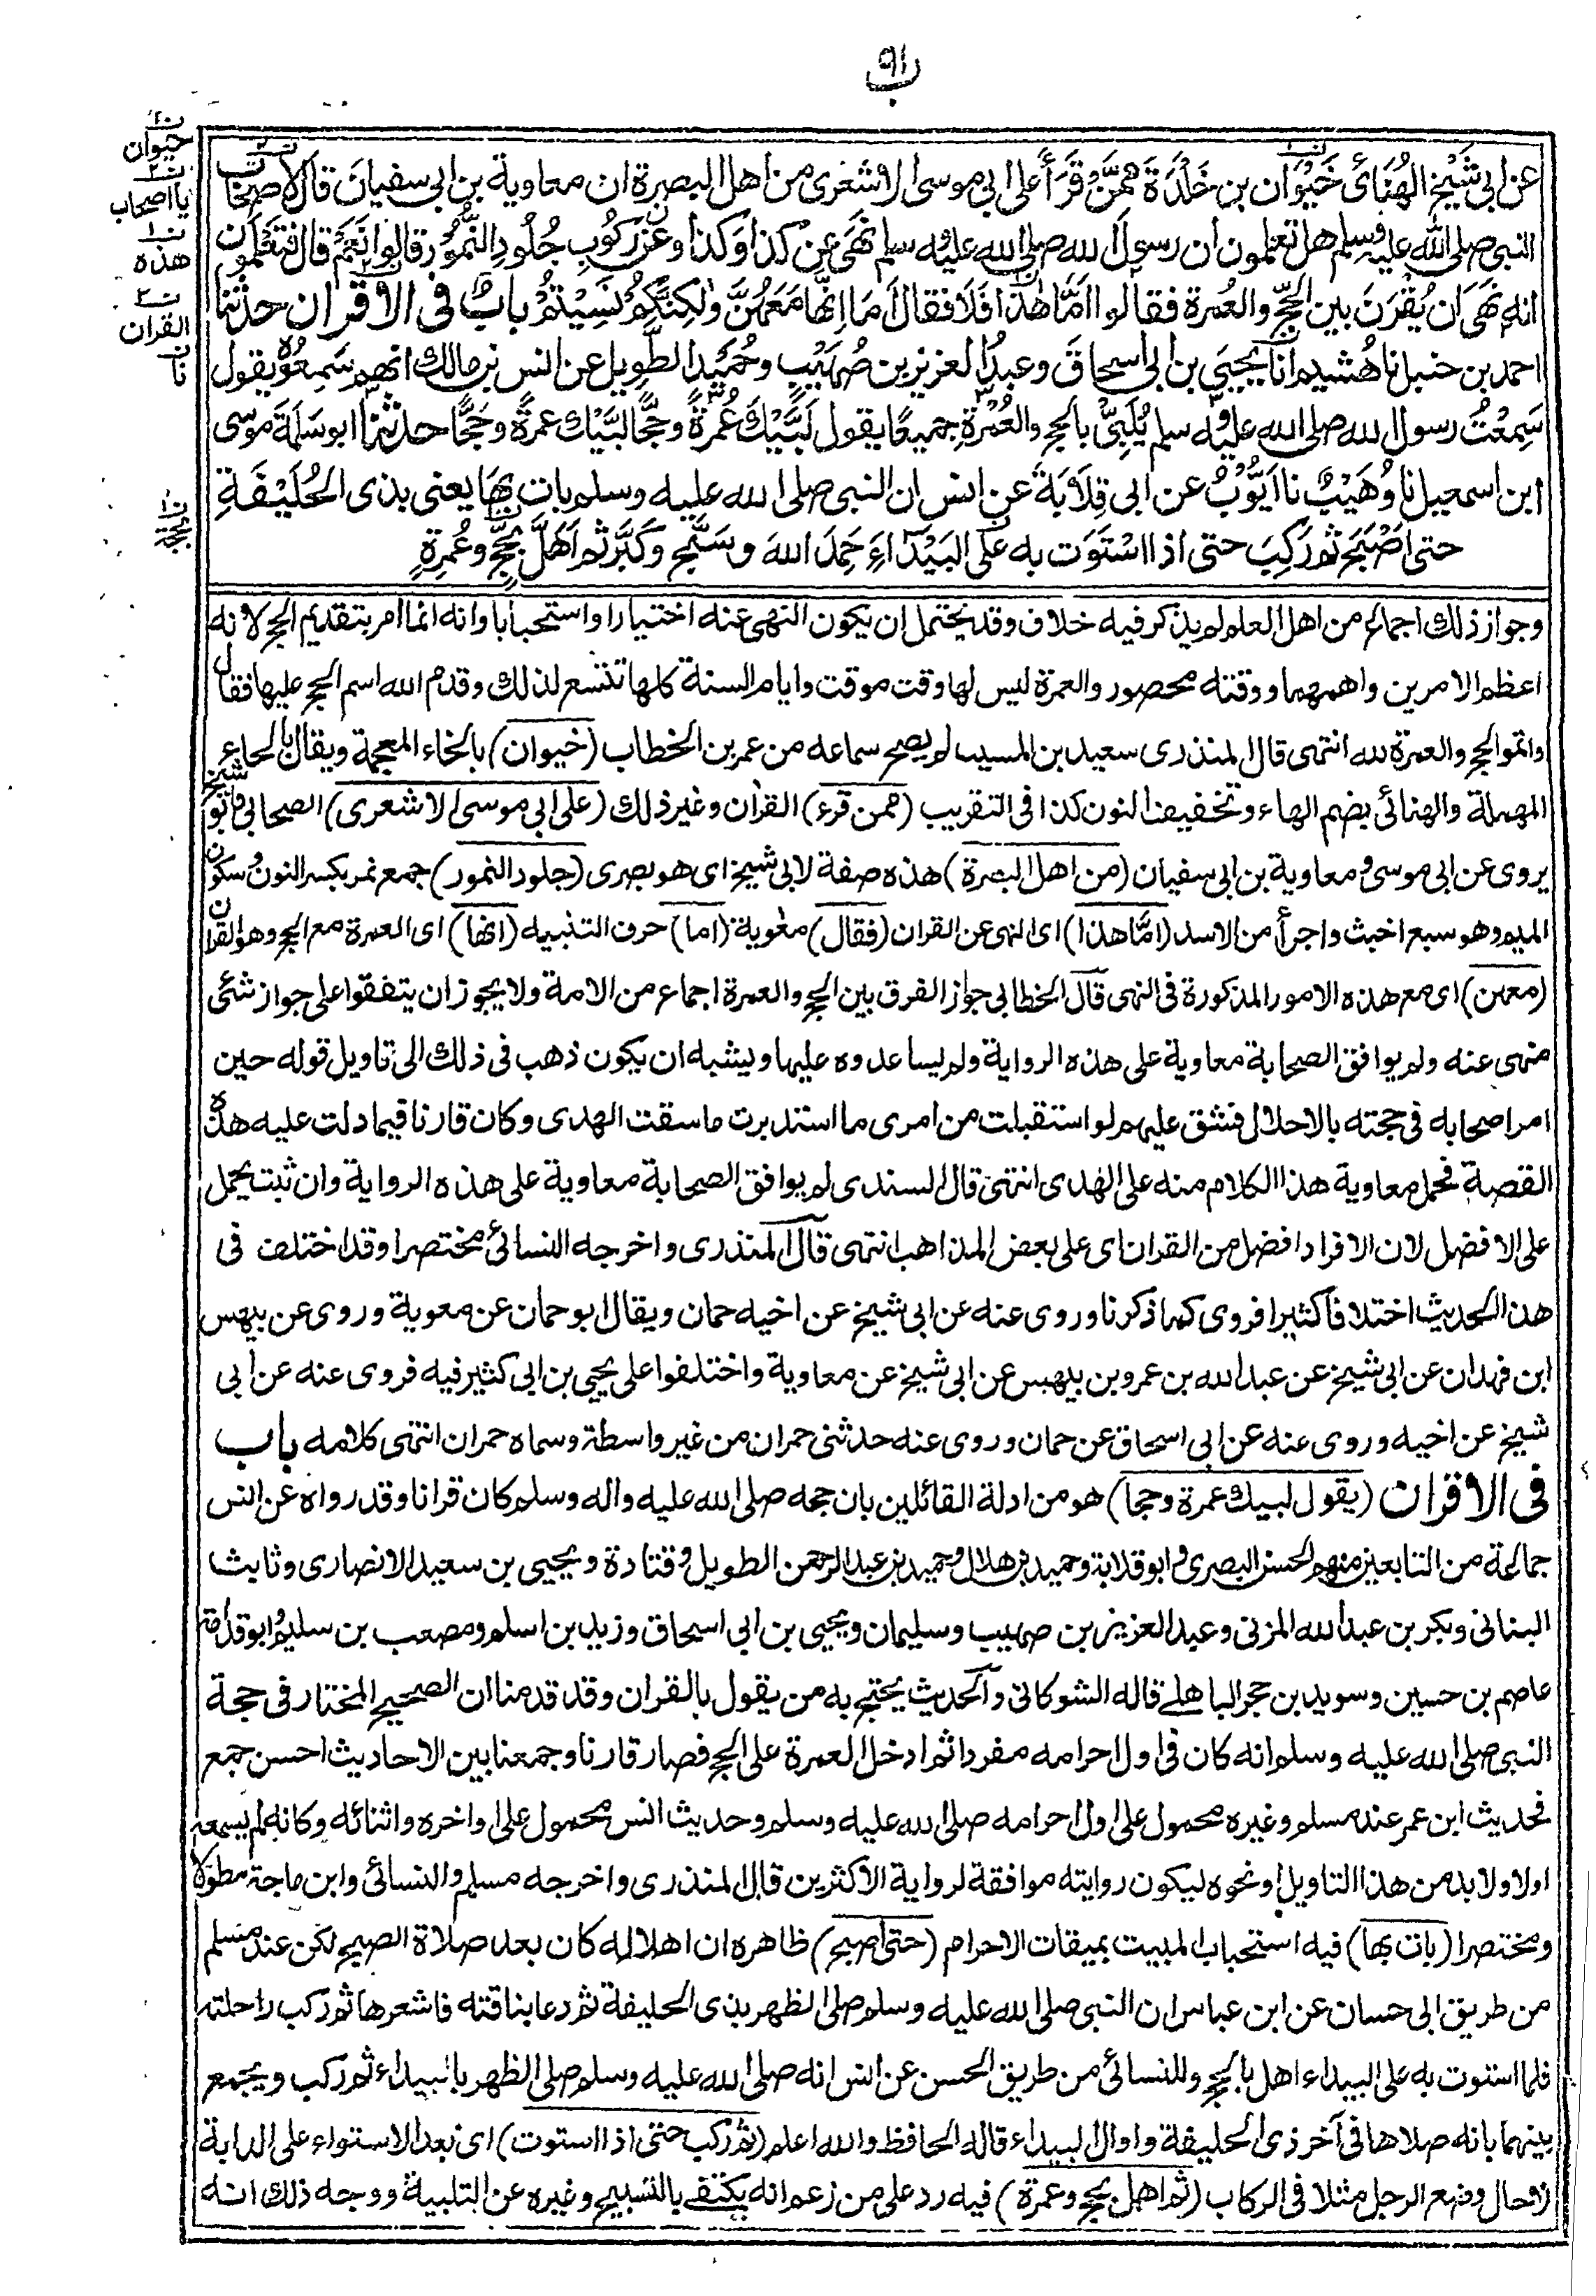 ن١
حيوان
ن٢
يااصحاب
ن١
هذه
ن٢
القران
ن
نا
ن١
بحجة
عن ابى شَيْخ الهُنَائى خَيْوَان بن خَلْدَةَ مِمَّنْ قَرَأَ على ابى موسى الاشعرى من اهل البصرة ان معاوية بن ابى سفيان قال لاصحاب
النبى صلى الله عليه وسلم هل تعلمون ان رسول الله صلى الله عليه وسلم نَهَى عن كذا وَكذا وعن رُكُوبِ جُلُودِ النُّمُوْر قالوا نَعَمْ قال فتَعْلَمُوْن
انه نَهَى ان يُقْرَنَ بين الحَجِّ والعُمرة فقالوا اَمَّا هٰذا فَلَا فقال اَمَا اِنَّهَا مَعَهُنَّ وَلٰكِنَّكُمْ نَسِيْتُمْ بابٌ فى الاقران حدثنا
احمد بن حنبل نا هُشَيم انا يَحْيَى بن ابى اسحاقَ وعبدُ العزيز بن صُهَيْبٍ وحُمَيْدُ الطَّوِيل عن انس بن مالك انهم سَمِعُوْهُ يقول
سَمِعْتُ رسول الله صلى الله عليه وسلم يُلَبِّىْ بالحج والعُمْرَةِ جميعًا يقول لَبَّيْكَ عُمْرَةً وحَجًّا لبَّيْك عمرةً وحَجًّا حدثنا ابو سَلَمَةَ موسى
ابن اسمعيل نا وُهَيْبٌ نا اَيُّوْبُ عن ابى قِلَابَةَ عن انس ان النبى صلى الله عليه وسلم بات بِهَا يعنى بذى الحُلَيْفَةِ
حتى اصْبَحَ ثم رَكِبَ حتى اذا اسْتَوَت به عَلَى البَيْدَاءِ حَمِدَ اللهَ وسَبَّح وكَبَّر ثم اَهَلَّ بحَجٍّ وعُمرةٍ
وجواز ذلك اجماع من اهل العلم لم يذكر فيه خلاف وقد يحتمل ان يكون النهى عنه اختيارا واستحبابا وانه انما امر بتقديم الحج لانه
اعظم الامرين واهمهما ووقته محصور والعمرة ليس لها وقت موقت وايام السنة كلها تتسع لذلك وقدم الله اسم الحج عليها فقال
واتموا الحج والعمرة لله انتهى قال المنذرى سعيد بن المسيب لم يصح سماعه من عمر بن الخطاب (خيوان) بالخاء المعجمة ويقال بالحاء
المهملة والهنائى بضم الهاء وتخفيف النون كذا فى التقريب (ممن قرء) القران وغير ذلك (على ابى موسى الاشعرى) الصحابى وابو شيخ
يروى عن ابى موسى ومعاوية بن ابى سفيان (من اهل البصرة) هذه صفة لابى شيخ اى هو بصرى (جلود النمور) جمع نمر بكسر النون وسكون
الميم وهو سبع اخبث واجرأ من الاسد (امّا هذا) اى النهى عن القران (فقال) معٰوية (اما) حرف التنبيه (انها) اى العمرة مع الحج وهو القران
(معهن) اى مع هذه الامور المذكورة فى النهى قال الخطابى جواز الفرق بين الحج والعمرة اجماع من الامة ولا يجوز ان يتفقوا على جواز شئى
منهى عنه ولم يوافق الصحابة معاوية على هذه الرواية ولم يساعدوه عليها ويشبه ان يكون ذهب فى ذلك الى تاويل قوله حين
امر اصحابه فى حجته بالاحلال فشق عليهم لو استقبلت من امرى ما استدبرت ما سقت الهدى وكان قارنا فيما دلت عليه هذه
القصة فحمل معاوية هذا الكلام منه على الهدى انتهى قال السندى لم يوافق الصحابة معاوية على هذه الرواية وان ثبت يحمل
على الافضل لان الافراد افضل من القران اى على بعض المذاهب انتهى قال المنذرى واخرجه النسائى مختصرا وقد اختلف فى
هذا الحديث اختلافا كثيرا فروى كما ذكرنا وروى عنه عن ابى شيخ عن اخيه حمان ويقال ابو حمان عن معوية وروى عن بيهس
ابن فهدان عن ابى شيخ عن عبد الله بن عمرو بن بيهس عن ابى شيخ عن معاوية واختلفوا على يحيى بن ابى كثير فيه فروى عنه عن ابى
شيخ عن اخيه وروى عنه عن ابى اسحاق عن حمان وروى عنه حدثنى حمران من غير واسطة وسماه حمران انتهى كلامه باب
فى الاقران (يقول لبيك عمرة وحجا) هو من ادلة القائلين بان حجه صلى الله عليه واله وسلم كان قرانا وقد رواه عن انس
جماعة من التابعين منهم الحسن البصرى وابو قلابة وحميد بن هلال وحميد بن عبد الرحمن الطويل وقتادة ويحيى بن سعيد الانصارى وثابت
البنانى وبكر بن عبد الله المزنى وعبد العزيز بن صهيب وسليمان ويحيى بن ابى اسحاق وزيد بن اسلم ومصعب بن سليم وابو قدامة
عاصم بن حسين وسويد بن حجر الباهلے قاله الشوكانى والحديث يحتج به من يقول بالقران وقد قدمنا ان الصحيح المختار فى حجة
النبى صلى الله عليه وسلم انه كان فى اول احرامه مفردا ثم ادخل العمرة على الحج فصار قارنا وجمعنا بين الاحاديث احسن جمع
فحديث ابن عمر عند مسلم وغيره محمول على اول احرامه صلى الله عليه وسلم وحديث انس محمول على اواخره واثنائه وكانه لم يسمعه
اولا ولا بد من هذا التاويل او نحوه ليكون روايته موافقة لرواية الاكثرين قال المنذرى واخرجه مسلم والنسائى وابن ماجة مطولا
ومختصرا (بات بها) فيه استحباب المبيت بميقات الاحرام (حتى اصبح) ظاهره ان اهلاله كان بعد صلاة الصبح لكن عند مسلم
من طريق ابى حسان عن ابن عباس ان النبى صلى الله عليه وسلم صلى الظهر بذى الحليفة ثم دعا بناقته فاشعرها ثم ركب راحلته
فلما استوت به على البيداء اهل بالحج وللنسائى من طريق الحسن عن انس انه صلى الله عليه وسلم صلى الظهر بالبيداء ثم ركب ويجمع
بينهما بانه صلاها فى آخر ذى الحليفة واول البيداء قاله الحافظ والله اعلم (ثم ركب حتى اذا استوت) اى بعد الاستواء على الدابة
لا حال وضع الرجل مثلا فى الركاب (ثم اهل بحج وعمرة) فيه رد على من زعم انه يكتفے بالتسبيح وغيره عن التلبية ووجه ذلك انه